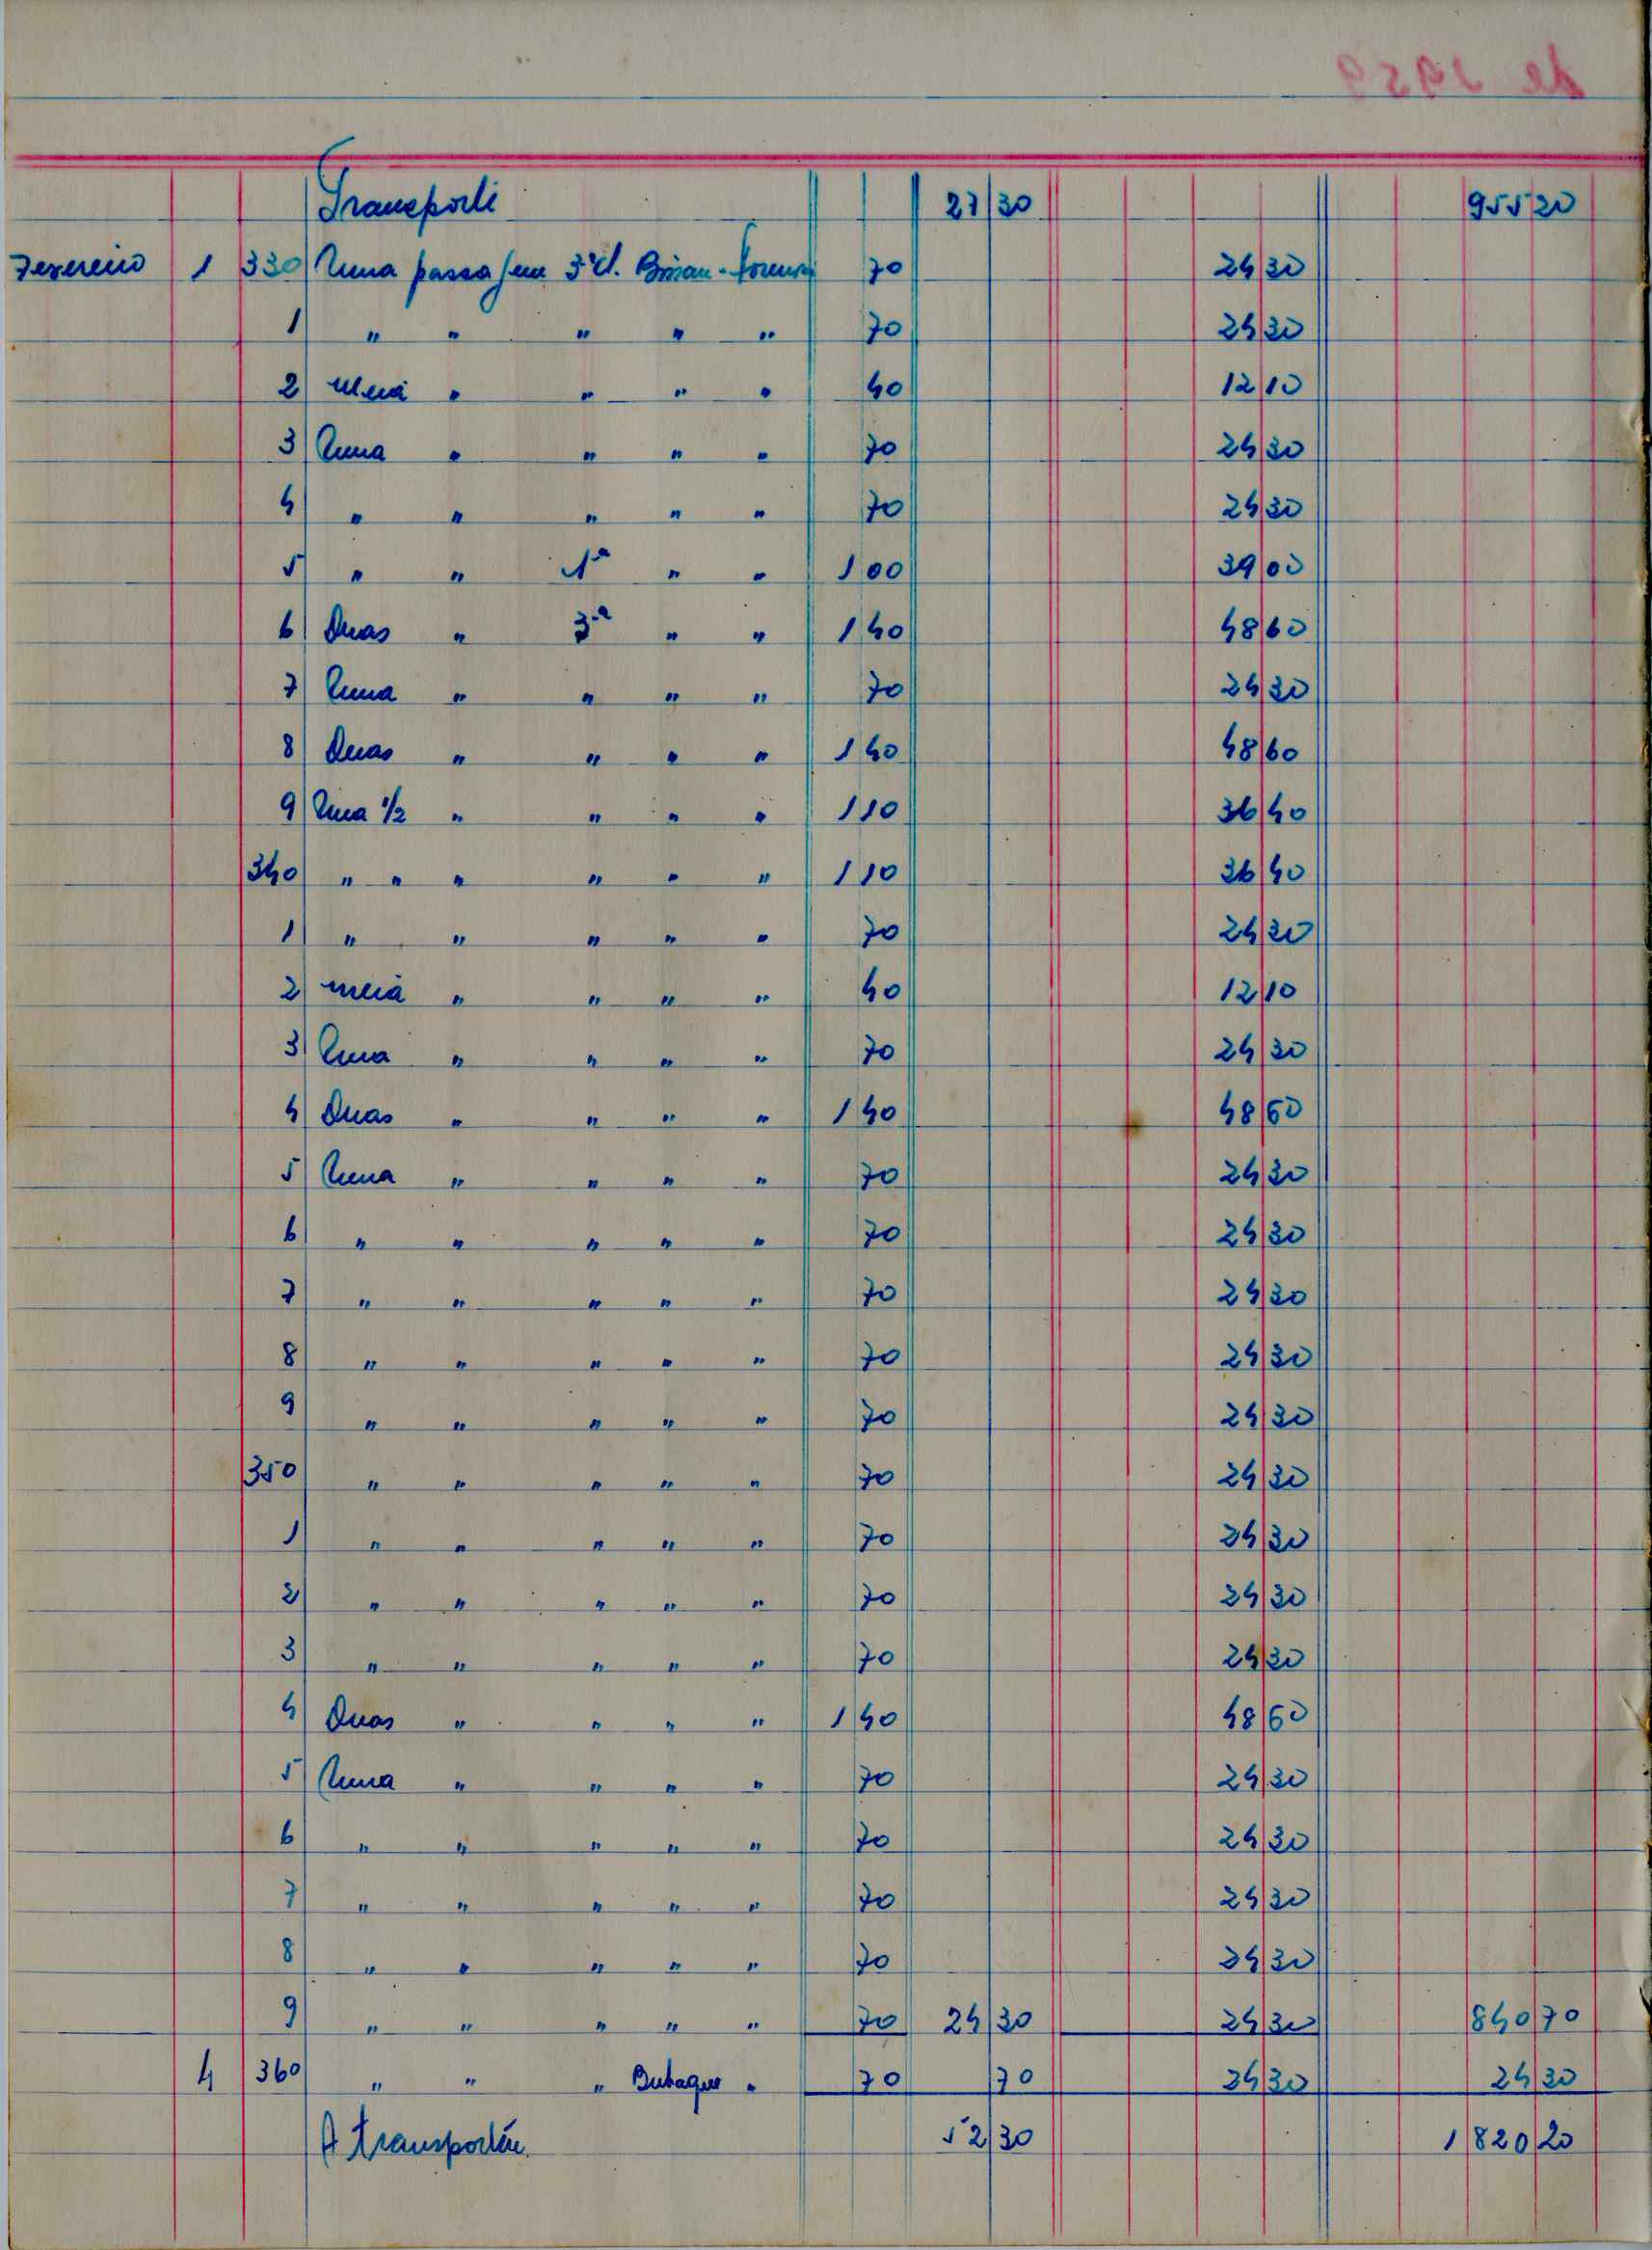 de 1959
Transporte 27 30 955 20
Fevereiro 1 330 Uma passagem 3ª cl. Bissau - 70 24 30
1 " " " " " 70 24 30
2 Meia " " " " 40 12 10
3 Uma " " " " 70 24 30
4 " " " " " 70 24 30
5 " " 1ª " " 1 00 39 00
6 Duas " 3ª " " 1 40 48 60
7 Uma " " " " 70 24 30
8 Duas " " " " 1 40 48 60
9 Uma 1/2 " " " " 1 10 36 40
340 " " " " " " 1 10 36 40
1 " " " " " 70 24 30
2 meia " " " " 40 12 10
3 Uma " " " " 70 24 30
4 Duas " " " " 1 40 48 60
5 Uma " " " " 70 24 30
6 " " " " " 70 24 30
7 " " " " " 70 24 30
8 " " " " " 70 24 30
9 " " " " " 70 24 30
350 " " " " " 70 24 30
1 " " " " " 70 24 30
2 " " " " " 70 24 30
3 " " " " " 70 24 30
4 Duas " " " " 1 40 48 60
5 Uma " " " " 70 24 30
6 " " " " " 70 24 30
7 " " " " " 70 24 30
8 " " " " " 70 24 30
9 " " " " " 70 24 30 24 30 840 70
4 360 " " " Bubaque " 70 70 24 30 24 30
A transportar 52 30 1 820 20